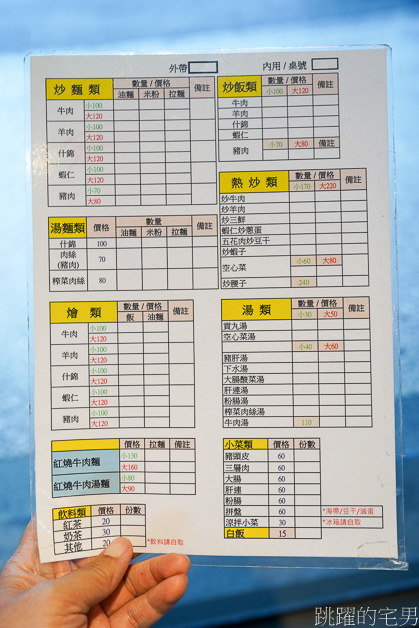 外帶
內用 / 桌號
炒麵類 數量 / 價格 備註
油麵 米粉 拉麵
牛肉 小100 大120
羊肉 小100 大120
什錦 小100 大120
蝦仁 小100 大120
豬肉 小70 大80
湯麵類 價格 數量 備註
油麵 米粉 拉麵
什錦 100
肉絲(豬肉) 70
榨菜肉絲 80
燴類 數量 / 價格 備註
飯 油麵
牛肉 小100 大120
羊肉 小100 大120
什錦 小100 大120
蝦仁 小100 大120
豬肉 小100 大120
價格 拉麵 備註
紅燒牛肉麵 小130 大160
紅燒牛肉湯麵 小80 大90
飲料類 價格 份數
紅茶 20
奶茶 30
其他 20
*飲料請自取
炒飯類 數量 / 價格 備註
小100 大120
牛肉
羊肉
什錦
蝦仁
豬肉 小70 大80 備註
熱炒類 數量 / 價格 備註
小170 大220
炒牛肉
炒羊肉
炒三鮮
蝦仁炒蔥蛋
五花肉炒豆干
炒蝦子
空心菜 小60 大80
炒腰子 240
湯類 數量 / 價格 備註
小30 大50
貢丸湯
空心菜湯
小40 大60
豬肝湯
下水湯
大腸酸菜湯
肝連湯
粉腸湯
榨菜肉絲湯
牛肉湯 110
小菜類 價格 份數
豬頭皮 60
三層肉 60
大腸 60
肝連 60
粉腸 60
拼盤 60
涼拌小菜 30
白飯 15
*海帶/豆干/滷蛋
*冰箱請自取
跳躍的宅男